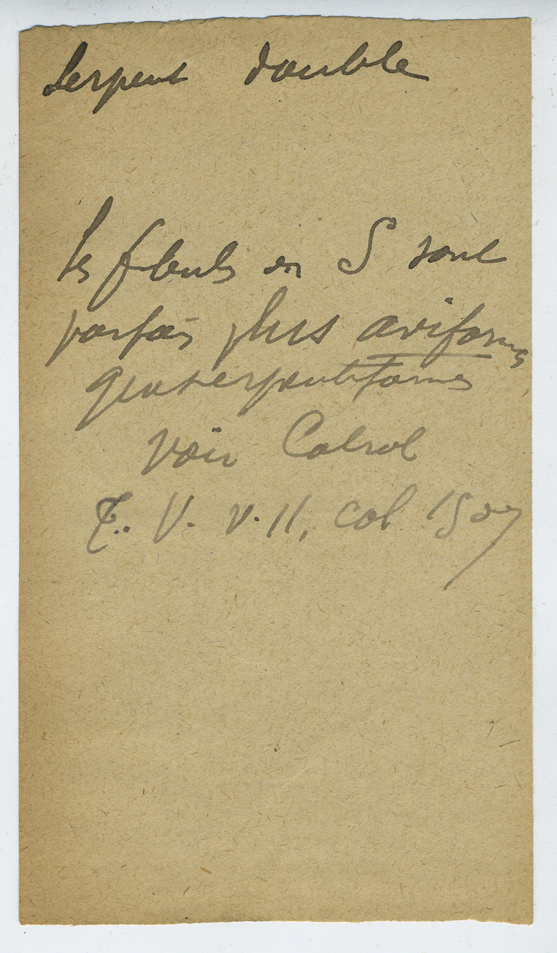 Serpent double
Les fibules en S sont
parfois plus aviformes
que serpentiformes
voir Cabrol
T. V. v. II, col 1507